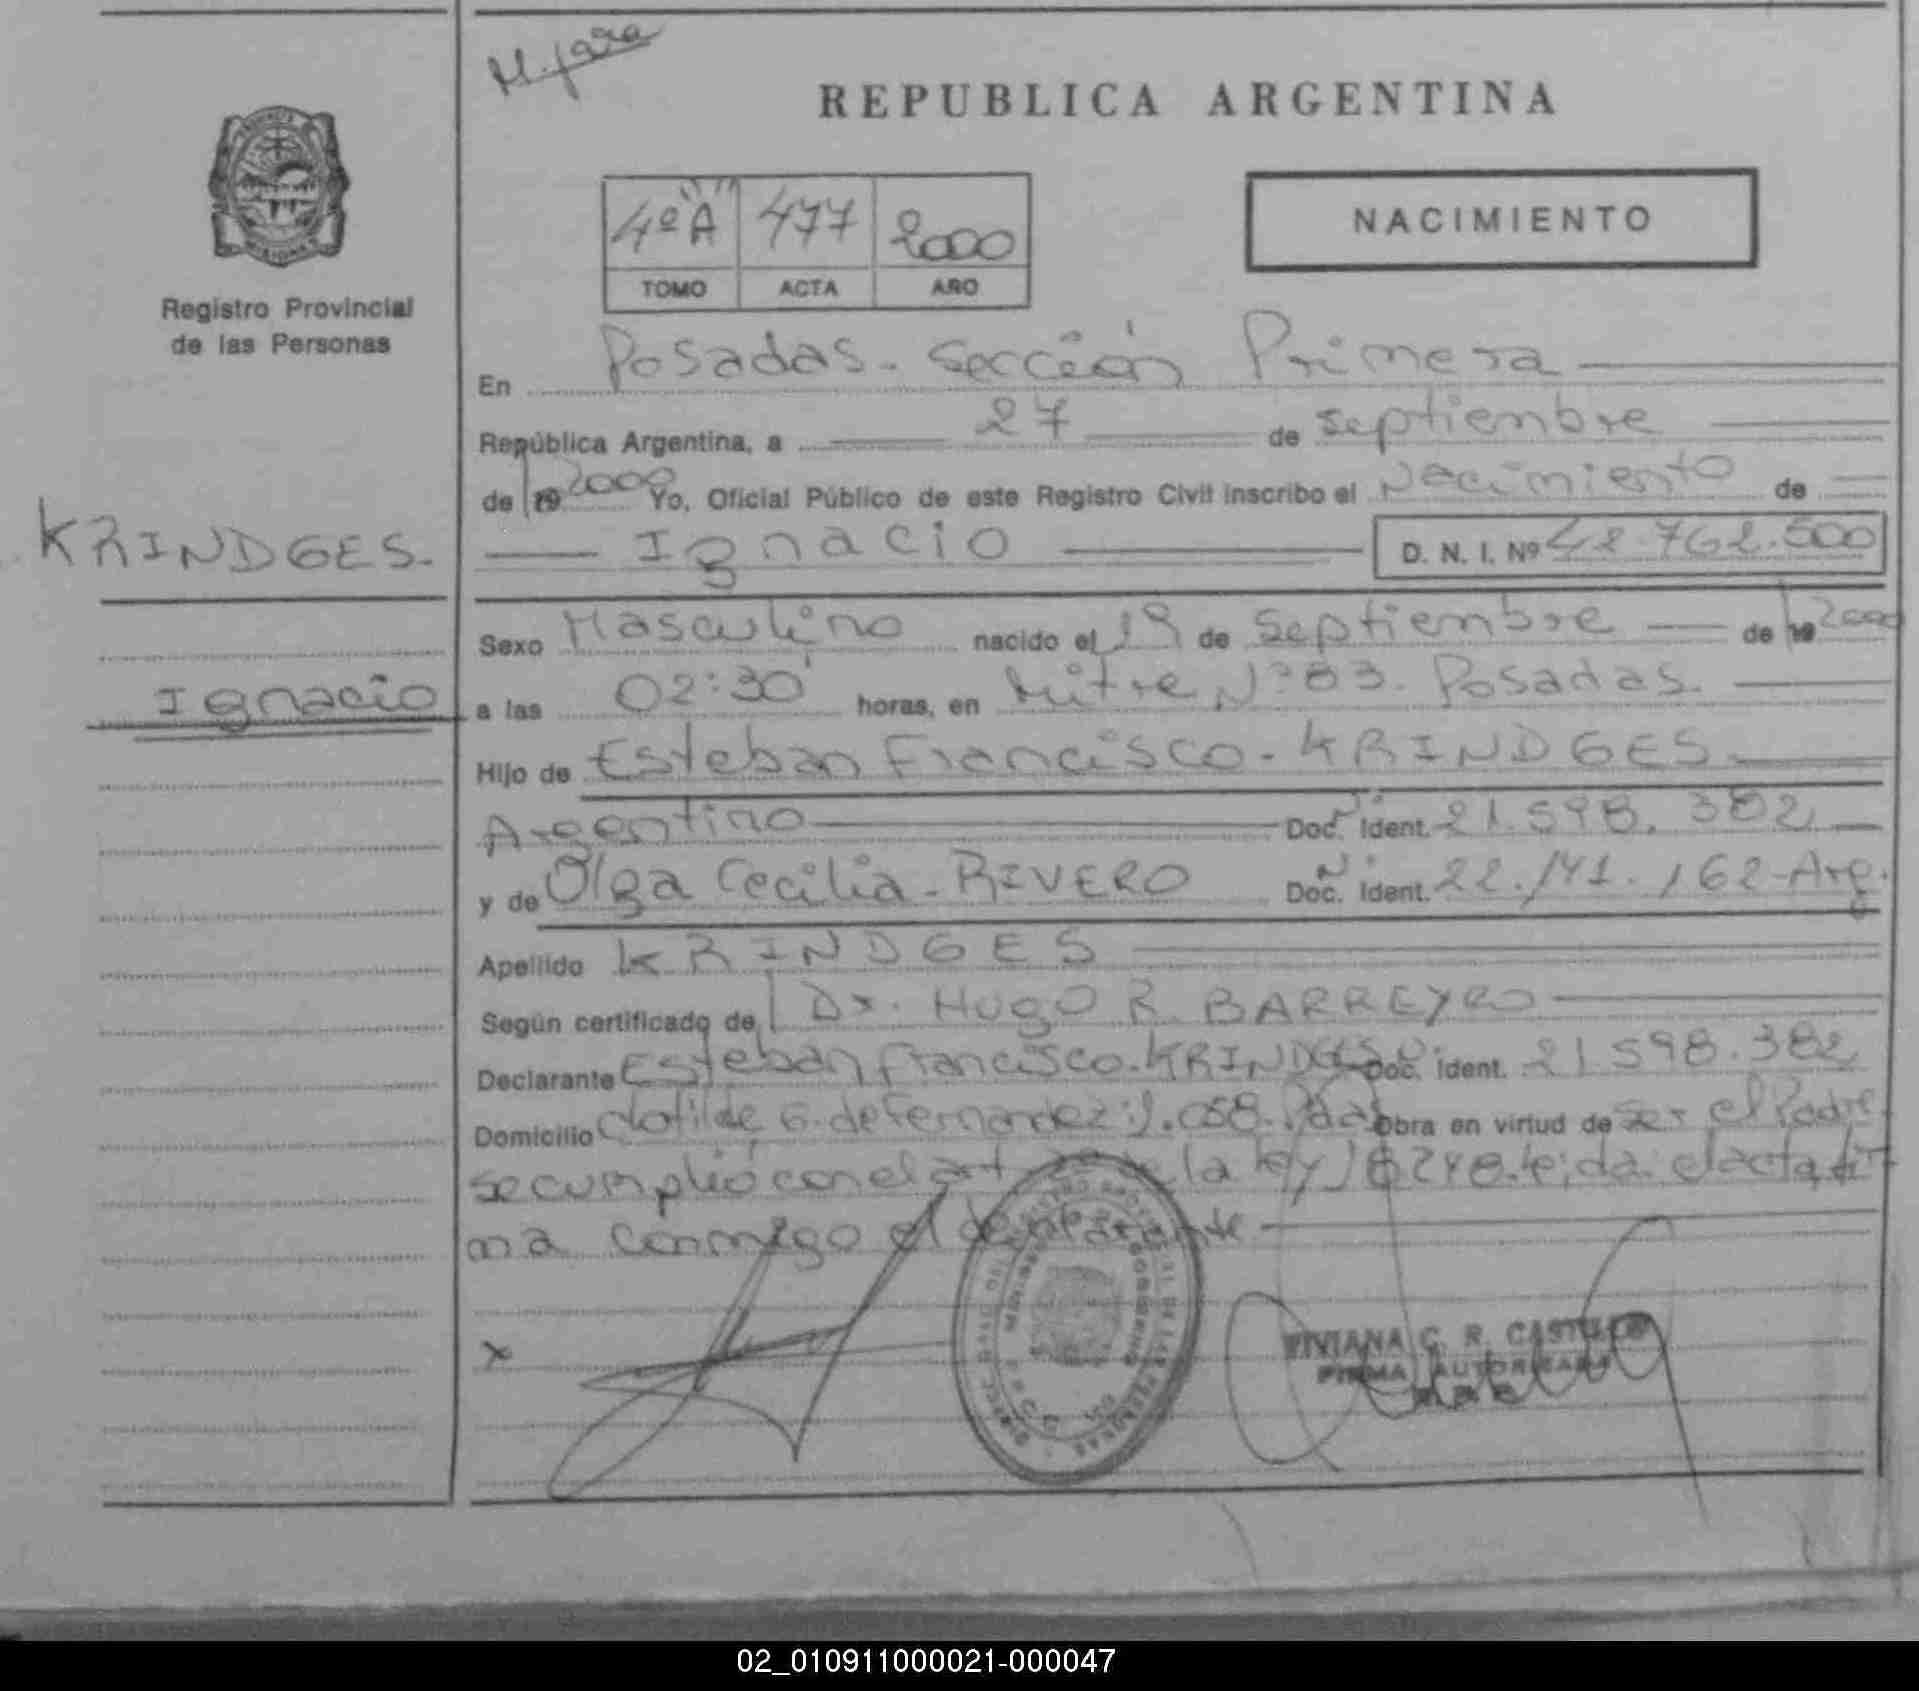 M. Jara
REPUBLICA ARGENTINA
4º "A" 477 2000
TOMO ACTA AÑO
NACIMIENTO
Registro Provincial
de las Personas
En Posadas. Sección Primera
República Argentina, a 27 de septiembre
de 19 2000 Yo, Oficial Público de este Registro Civil inscribo el Nacimiento de
KRINDGES.
Ignacio D. N. I. Nº 42.762.500
Sexo Masculino nacido el 19 de Septiembre de 19 2000
Ignacio
a las 02:30' horas, en Mitre Nº 83. Posadas.
Hijo de Esteban Francisco - KRINDGES
Argentino Doc. Ident. Nº 21.598.382
y de Olga Cecilia - RIVERO Doc. Ident. Nº 22.141.162-Arg.
Apellido KRINDGES
Según certificado de Dr. Hugo R. BARREYRO
Declarante Esteban Francisco - KRINDGES Doc. Ident. 21.598.382
Domicilio Clotilde G. de Fernandez Obra en virtud de ser el Padre
se cumplió con el art de la ley 18248. leída el acta fir
ma conmigo el declarante
x
VIVIANA G. R. CASTILLO
FIRMA AUTORIZADA
02_010911000021-000047